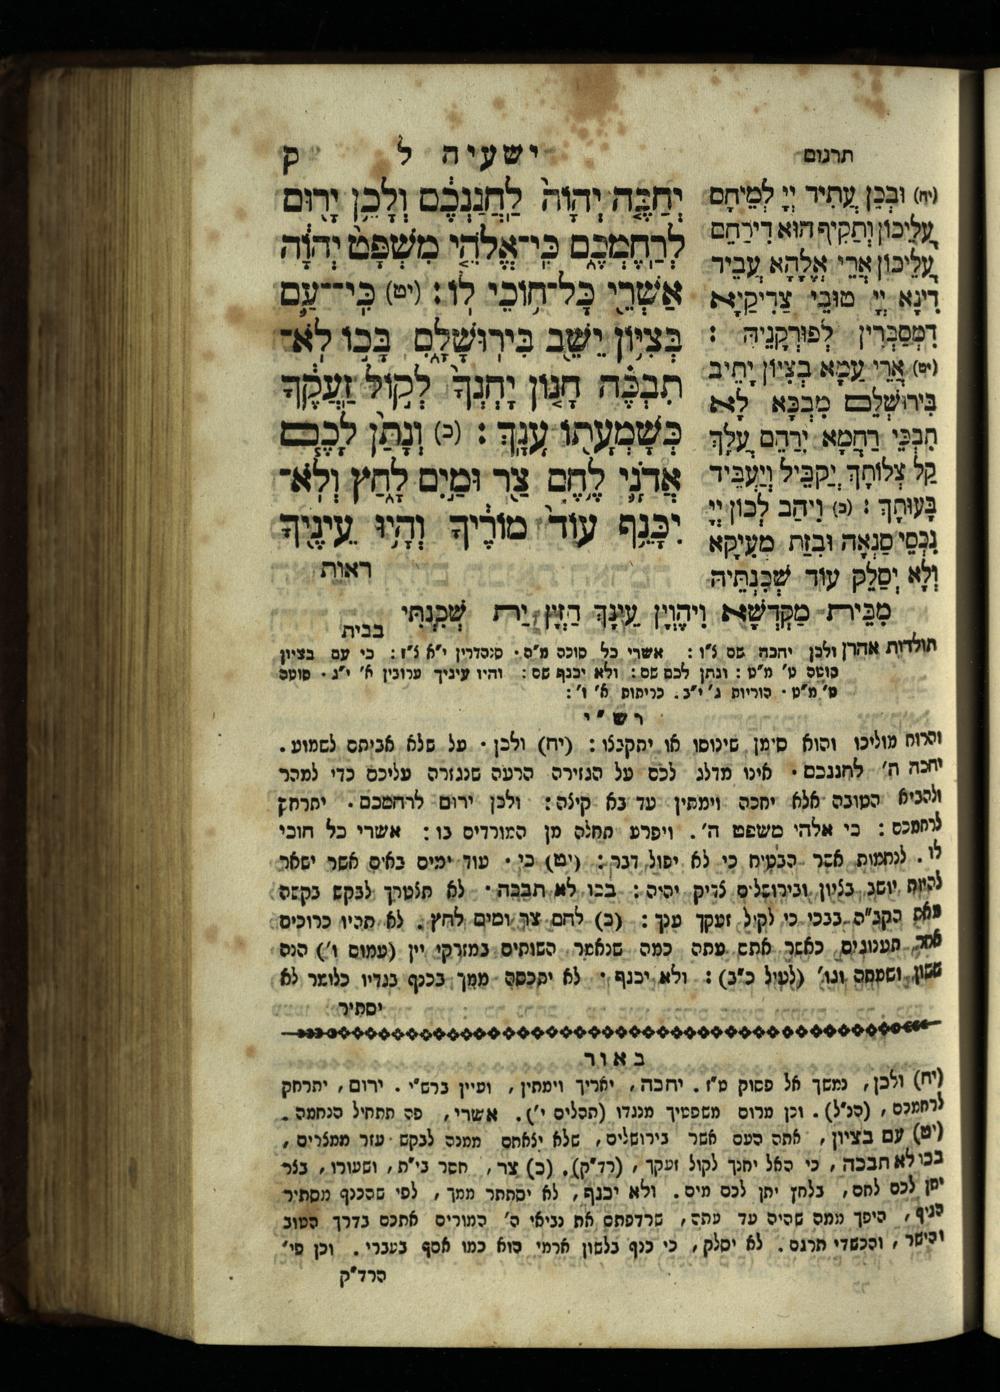 ישעיה ל ק
יְחַכֶּה יְהֹוָה לַחֲנַנְכֶם וְלָכֵן יָרוּם
לְרַחֶמְכֶם כִּי־אֱלֹהֵי מִשְׁפָּט יְהֹוָה
אַשְׁרֵי כָּל־חוֹכֵי לוֹ : (יט) כִּי־עַם
בְּצִיּוֹן יֵשֵׁב בִּירוּשָׁלָםִ בָּכוֹ לֹא־
תִבְכֶּה חָנוֹן יָחְנְךָ לְקוֹל זַעֲקֶךָ
כְּשָׁמְעָתוֹ עָנָךְ : (כ) וְנָתַן לָכֶם
אֲדֹנָי לֶחֶם צָר וּמַיִם לָחַץ וְלֹא־
יִכָּנֵף עוֹד מוֹרֶיךָ וְהָיוּ עֵינֶיךָ
ראות
תרגום
(יח) וּבְכֵן עֲתִיד יְיָ לְמֵיחַם
עֲלֵיכוֹן וְתַקִיף הוּא דִירַחֵם
עֲלֵיכוֹן אֲרֵי אֱלָהָא עֲבֵיד
דִינָא יְיָ טוּבֵי צַדִיקַיָא
דִמְסַבְּרִין לְפוּרְקָנֵיהּ :
(יט) אֲרֵי עַמָא בְצִיּוֹן יָתֵיב
בִּירוּשְׁלֵם מִבְכָּא לָא
תִבְכֵּי רַחֲמָא יְרַהֵם עֲלָךְ
קַל צְלוֹתָךְ יְקַבֵּיל וְיַעְבֵּיד
בָּעוּתָךְ : (כ) וְיִהַב לְכוֹן יְיָ
נִכְסֵי סַנְאָה וּבִזַת מְעִיקָא
וְלָא יְסַלֵק עוֹד שְׁכִנְתֵּיהּ
מִבֵּית מַקְדְּשָׁא וִיהֶוְיָן עֵינָךְ חַזְיָן יַת שְׁכִנְתִּי
בבית
תולדות אהרן ולכן יחכה שם צ״ו : אשרי כל סוכה מ״ה · סנהדרין י״א צ״ז : כי עם בציון
סוטה ט׳ מ״ט : ונתן לכם שם : ולא יכנף שם : והיו עיניך ערובין א׳ י״ג · סוטה
ט׳ מ״ט · הוריות ג׳ י״ב . כריתות א׳ ו׳ :
רש״י
והרוח מוליכו והוא סימן שינוסו או יתקבצו : (יח) ולכן · על שלא אביתם לשמוע .
יחכה ה׳ לחננכם · אינו מדלג לכם על הגזירה הרעה שנגזרה עליכם כדי למהר
ולהביא הטובה אלא יחכה וימתין עד בא קיצה : ולכן ירום לרחמכם · יתרחק
לרחמכם : כי אלהי משפט ה׳ . ויפרע תחלה מן המורדים בו : אשרי כל חוכי
לו . לנחמות אשר הבטיח כי לא יפול דבר : (יט) כי · עוד ימים באים אשר ישאר
להיות יושב בציון ובירושלים צדיק יהיה : בכו לא תבכה · לא תצטרך לבקש בקשה
מאת הקב״ה בבכי כי לקול זעקך ענך : (כ) לחם צר ומים לחץ . לא תהיו כרוכים
אחר תענוגים כאשר אתם עתה כמה שנאמר השותים במזרקי יין (עמוס ו׳) הנה
ששון ושמחה וגו׳ (לעיל כ״ב) : ולא יכנף · לא יתכסה ממך בכנף בגדיו כלומר לא
יסתיר
באור
(יח) ולכן , נמשך אל פסוק ט״ז . יחכה , יאריך וימתין , ועיין ברש״י . ירום , יתרחק
לרחמכם , (הנ״ל) . וכן מרום משפטיך מנגדו (תהלים י׳) . אשרי , פה תתחיל הנחמה .
(יט) עם בציון , אתה העם אשר בירושלים , שלא יצאתם ממנה לבקש עזר ממצרים ,
בכו לא תבכה , כי האל יחנך לקול זעקך , (רד״ק) . (כ) צר , חסר בי״ת , ושעורו , בצר
יתן לכם לחם , בלחץ יתן לכם מים . ולא יכנף , לא יסתתר ממך , לפי שהכנף מסתיר
הגוף , היפך ממה שהיה עד עתה , שרדפתם את נביאי ה׳ המורים אתכם בדרך הטוב
והישר , והכשדי תרגם . לא יסלק , כי כנף בלשון ארמי הוא כמו אסף בעברי . וכן פי׳
הרד״ק